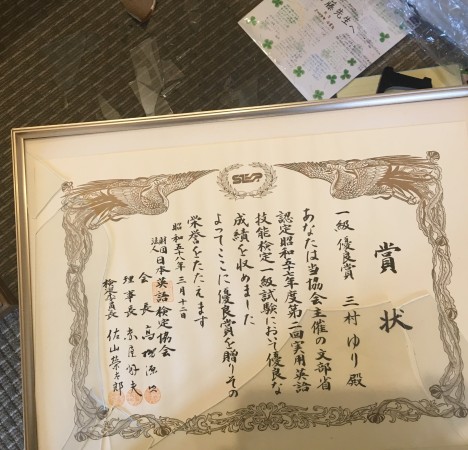 賞状
一級 優良賞 三村 ゆり 殿
あなたは当協会主催の文部省
認定昭和五十七年度第二回実用英語
技能検定一級試験において優良な
成績を収めました
よってここに優良賞を贈りその
栄誉をたたえます
昭和五十八年 三月十二日
財団法人 日本英語検定協会
会長
理事長
検定委員長 佐山榮太郎
STEP
藤先生へ